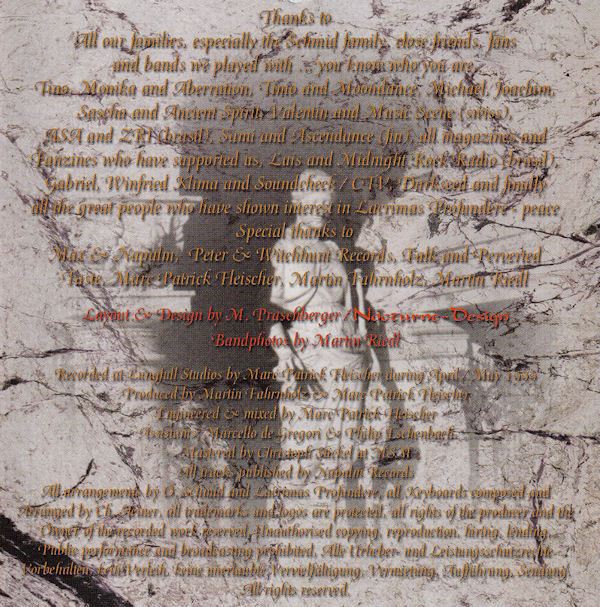 Thanks to
All our families, especially the Schmid family, close friends, fans
and bands we played with ... you know who you are,
Tino, Monika and Aberration, Timo and Moondance, Michael, Joachim,
Sascha and Ancient Spirit, Valentin and Music Scene (swiss),
ASA and ZRI (brasil), Sami and Ascendance (fin), all magazines and
Fanzines who have supported us, Luis and Midnight Rock Radio (brasil),
Gabriel, Winfried Klima and Soundcheck / CTV, Darkseed and finally
all the great people who have shown interest in Lacrimas Profundere - peace
Special thanks to
Max & Napalm, Peter & Witchhunt Records, Falk and Perverted
Taste, Marc Patrick Fleischer, Martin Fahrnholz, Martin Riedl
Layout & Design by M. Praschberger / Nocturne-Design
Bandphotos by Martin Riedl
Recorded at Lungfull Studios by Marc Patrick Fleischer during April / May 1999
Produced by Martin Fahrnholz & Marc Patrick Fleischer
Engineered & mixed by Marc Patrick Fleischer
Assistants: Marcello de Gregori & Philip Eschenbach
Mastered by Christoph Stickel at M.S.M.
All tracks published by Napalm Records
All arrangements by O. Schmid and Lacrimas Profundere, all Keyboards composed and
Arranged by Ch. Steiner, all trademarks and logos are protected, all rights of the producer and the
Owner of the recorded work reserved. Unauthorised copying, reproduction, hiring, lending,
Public performance and broadcasting prohibited. Alle Urheber- und Leistungsschutzrechte
Vorbehalten, kein Verleih, keine unerlaubte Vervielfältigung, Vermietung, Aufführung, Sendung.
All rights reserved.